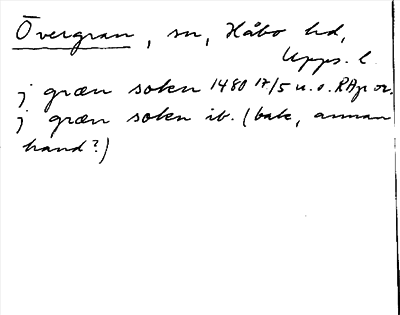 Övergran, sn, Håbo hd,
Upps. l.
j græn soken 1480 17/5 u.o. RAp or.
j græn soken ib. (bak, annan
hand?)